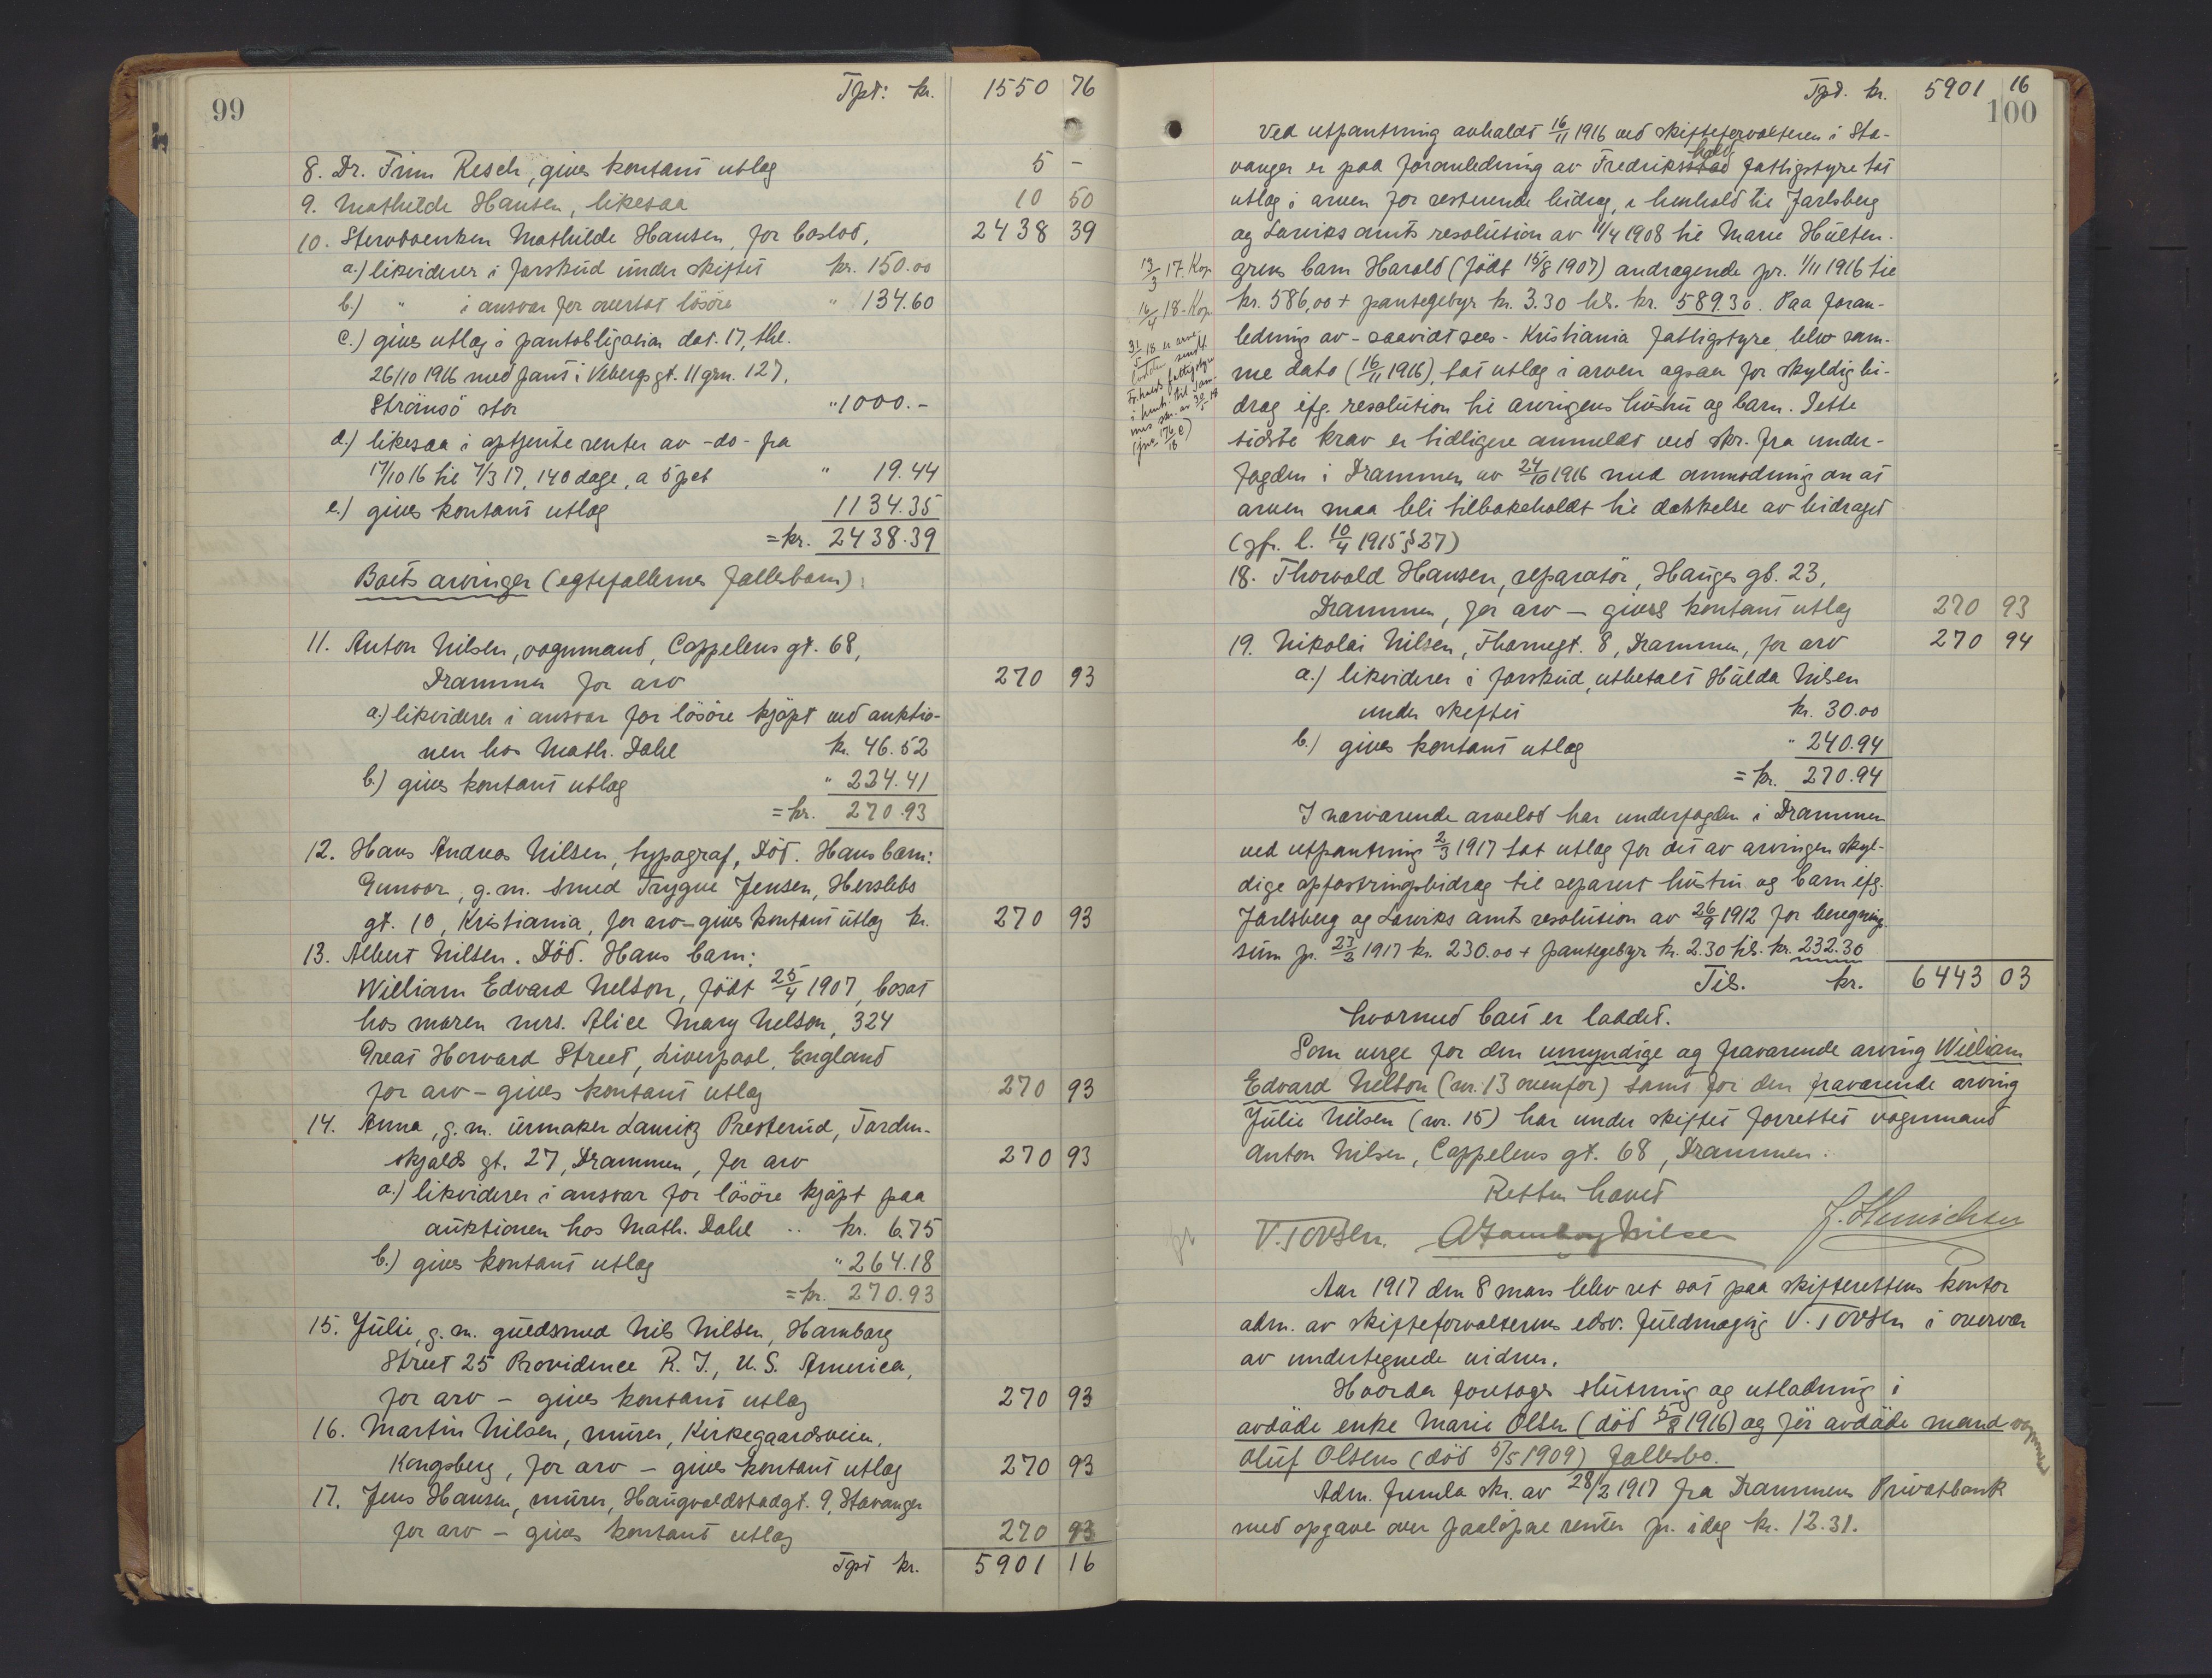 99
Tpt: kr. 1550 76
8. Dr. Finn Resch, gives kontant utlæg 5 -
9. Mathilde Hansen, likesaa 10 50
10. Stervboenken Mathilde Hansen, for boslod, 2438 39
a.) likviderer i forskud under skiftet kr. 150.00
b.) " i ansvar for overtat lösöre " 134.60
c.) gives utlæg i pantobligation dat. 17, thl.
26/10 1916 med pant i Vebergs gt. 11 grn. 127,
Strömsö stor "1000.-
d.) likesaa i optjente renter av -do- fra
17/10 16 til 7/3 17, 140 dage, a 5 pct " 19.44
e.) gives kontant utlæg 1134.35
= kr. 2438.39
Boets arvinger (egtefællernes fællesbarn):
11. Anton Nilsen, vognmand, Cappelens gt. 68,
Drammen for arv 270 93
a.) likviderer i ansvar for lösöre kjöpt ved auktio-
nen hos Math. Dahl kr. 46.52
b.) gives kontant utlæg " 224.41
= kr. 270.93
12. Hans Andreas Nilsen, typograf, Död. Hans barn:
Gunvor, g.m. smed Trygve Jensen, Herslebs
gt. 10, Kristiania, for arv - gives kontant utlæg kr. 270 93
13. Albert Nilsen. Död. Hans barn:
William Edvard Nelson, födt 25/4 1907, bosat
hos moren mrs. Alice Mary Nelson, 324
Great Howard Street, Liverpool, England
for arv - gives kontant utlæg 270 93
14. Anna, g.m. urmaker Lauritz Presterud, Torden-
skjolds gt. 27, Drammen, for arv 270 93
a.) likviderer i ansvar for lösöre kjöpt paa
auktionen hos Math. Dahl .. kr. 6.75
b.) gives kontant utlæg " 264.18
= kr. 270.93
15. Julie, g.m. guldsmed Nils Nilsen, Hamborg
Street 25 Providence R.I., U.S. America,
for arv - gives kontant utlæg 270 93
16. Martin Nilsen, murer, Kirkegaardsveien,
Kongsberg, for arv - gives kontant utlæg 270 93
17. Jens Hansen, murer, Haugvaldstadgt. 9, Stavanger
for arv - gives kontant utlæg 270 93
Tpt kr. 5901 16
Tpt. kr. 5901 16
100
Ved utpantning avholdt 16/11 1916 ved skifteforvalteren i Sta-
hald
vanger er paa foranledning av Fredriksstad fattigstyre tat
utlæg i arven for resterende bidrag, i henhold til Jarlsberg
og Larviks amts resolution av 11/4 1908 til Marie Hulten-
13/3 17. Kop.
grens barn Harald (födt 15/8 1907) andragende pr. 1/11 1916 til
16/4 18 - Kop.
kr. 586,00 + pantegebyr kr. 3.30 tils. kr. 589.30. Paa foran-
31/5 18 er arve
lodden sendt
Fr.halds fattigstyre
i henh. til
ledning av - saavidt sees - Kristiania fattigstyre, blev sam-
me dato (16/11 1916), tat utlæg i arven ogsaa for skyldig bi-
drag efg. resolution til arvingens hustru og barn. Dette
sidste krav er tidligere anmeldt ved skr. fra under-
fogden i Drammen av 24/10 1916 med anmodning om at
arven maa bli tilbakeholdt til dækkelse av bidraget
(jfr. l. 10/4 1915 § 27)
18. Thorvald Hansen, reparatör, Hauges gt. 23,
Drammen, for arv - gives kontant utlæg 270 93
19. Nikolai Nilsen, Thornegt. 8, Drammen, for arv 270 94
a.) likviderer i forskud, utbetalt Hulda Nilsen
under skiftet kr. 30.00
b.) gives kontant utlæg " 240.94
= kr. 270.94
I nærværende arvelod har underfogden i Drammen
ved utpantning 2/3 1917 tat utlæg for det av arvingen skyl-
dige opfostringsbidrag til separert hustru og barn efg.
Jarlsberg og Larviks amts resolution av 26/9 1912 for beregnings-
sum pr. 23/2 1917 kr. 230.00 + pantegebyr kr. 2.30 tils. kr. 232.30
Tils. kr. 6443 03
hvormed boet er laddet.
Som verge for den umyndige og fraværende arving William
Edvard Nelson (nr. 13 ovenfor) samt for den fraværende arving
Julie Nilsen (nr. 15) har under skiftet forrettet vognmand
Anton Nilsen, Cappelens gt. 68, Drammen.
Retten hævet
V. Tovsen.
Aar 1917 den 8 mars blev ret sat paa skifterettens kontor
adm. av skifteforvalterens edsv. fuldmægtig V. Tovsen i overvær
av undertegnede vidner.
Hvorda foretoges slutning og utlodning i
avdöde enke Marie Olsen (död 5/8 1916) og för avdöde mand vognmand
Oluf Olsens (död 5/5 1909) fællesbo.
Adm. fremla skr. av 28/2 1917 fra Drammens Privatbank
med opgave over paalöpne renter pr. idag kr. 12.31.